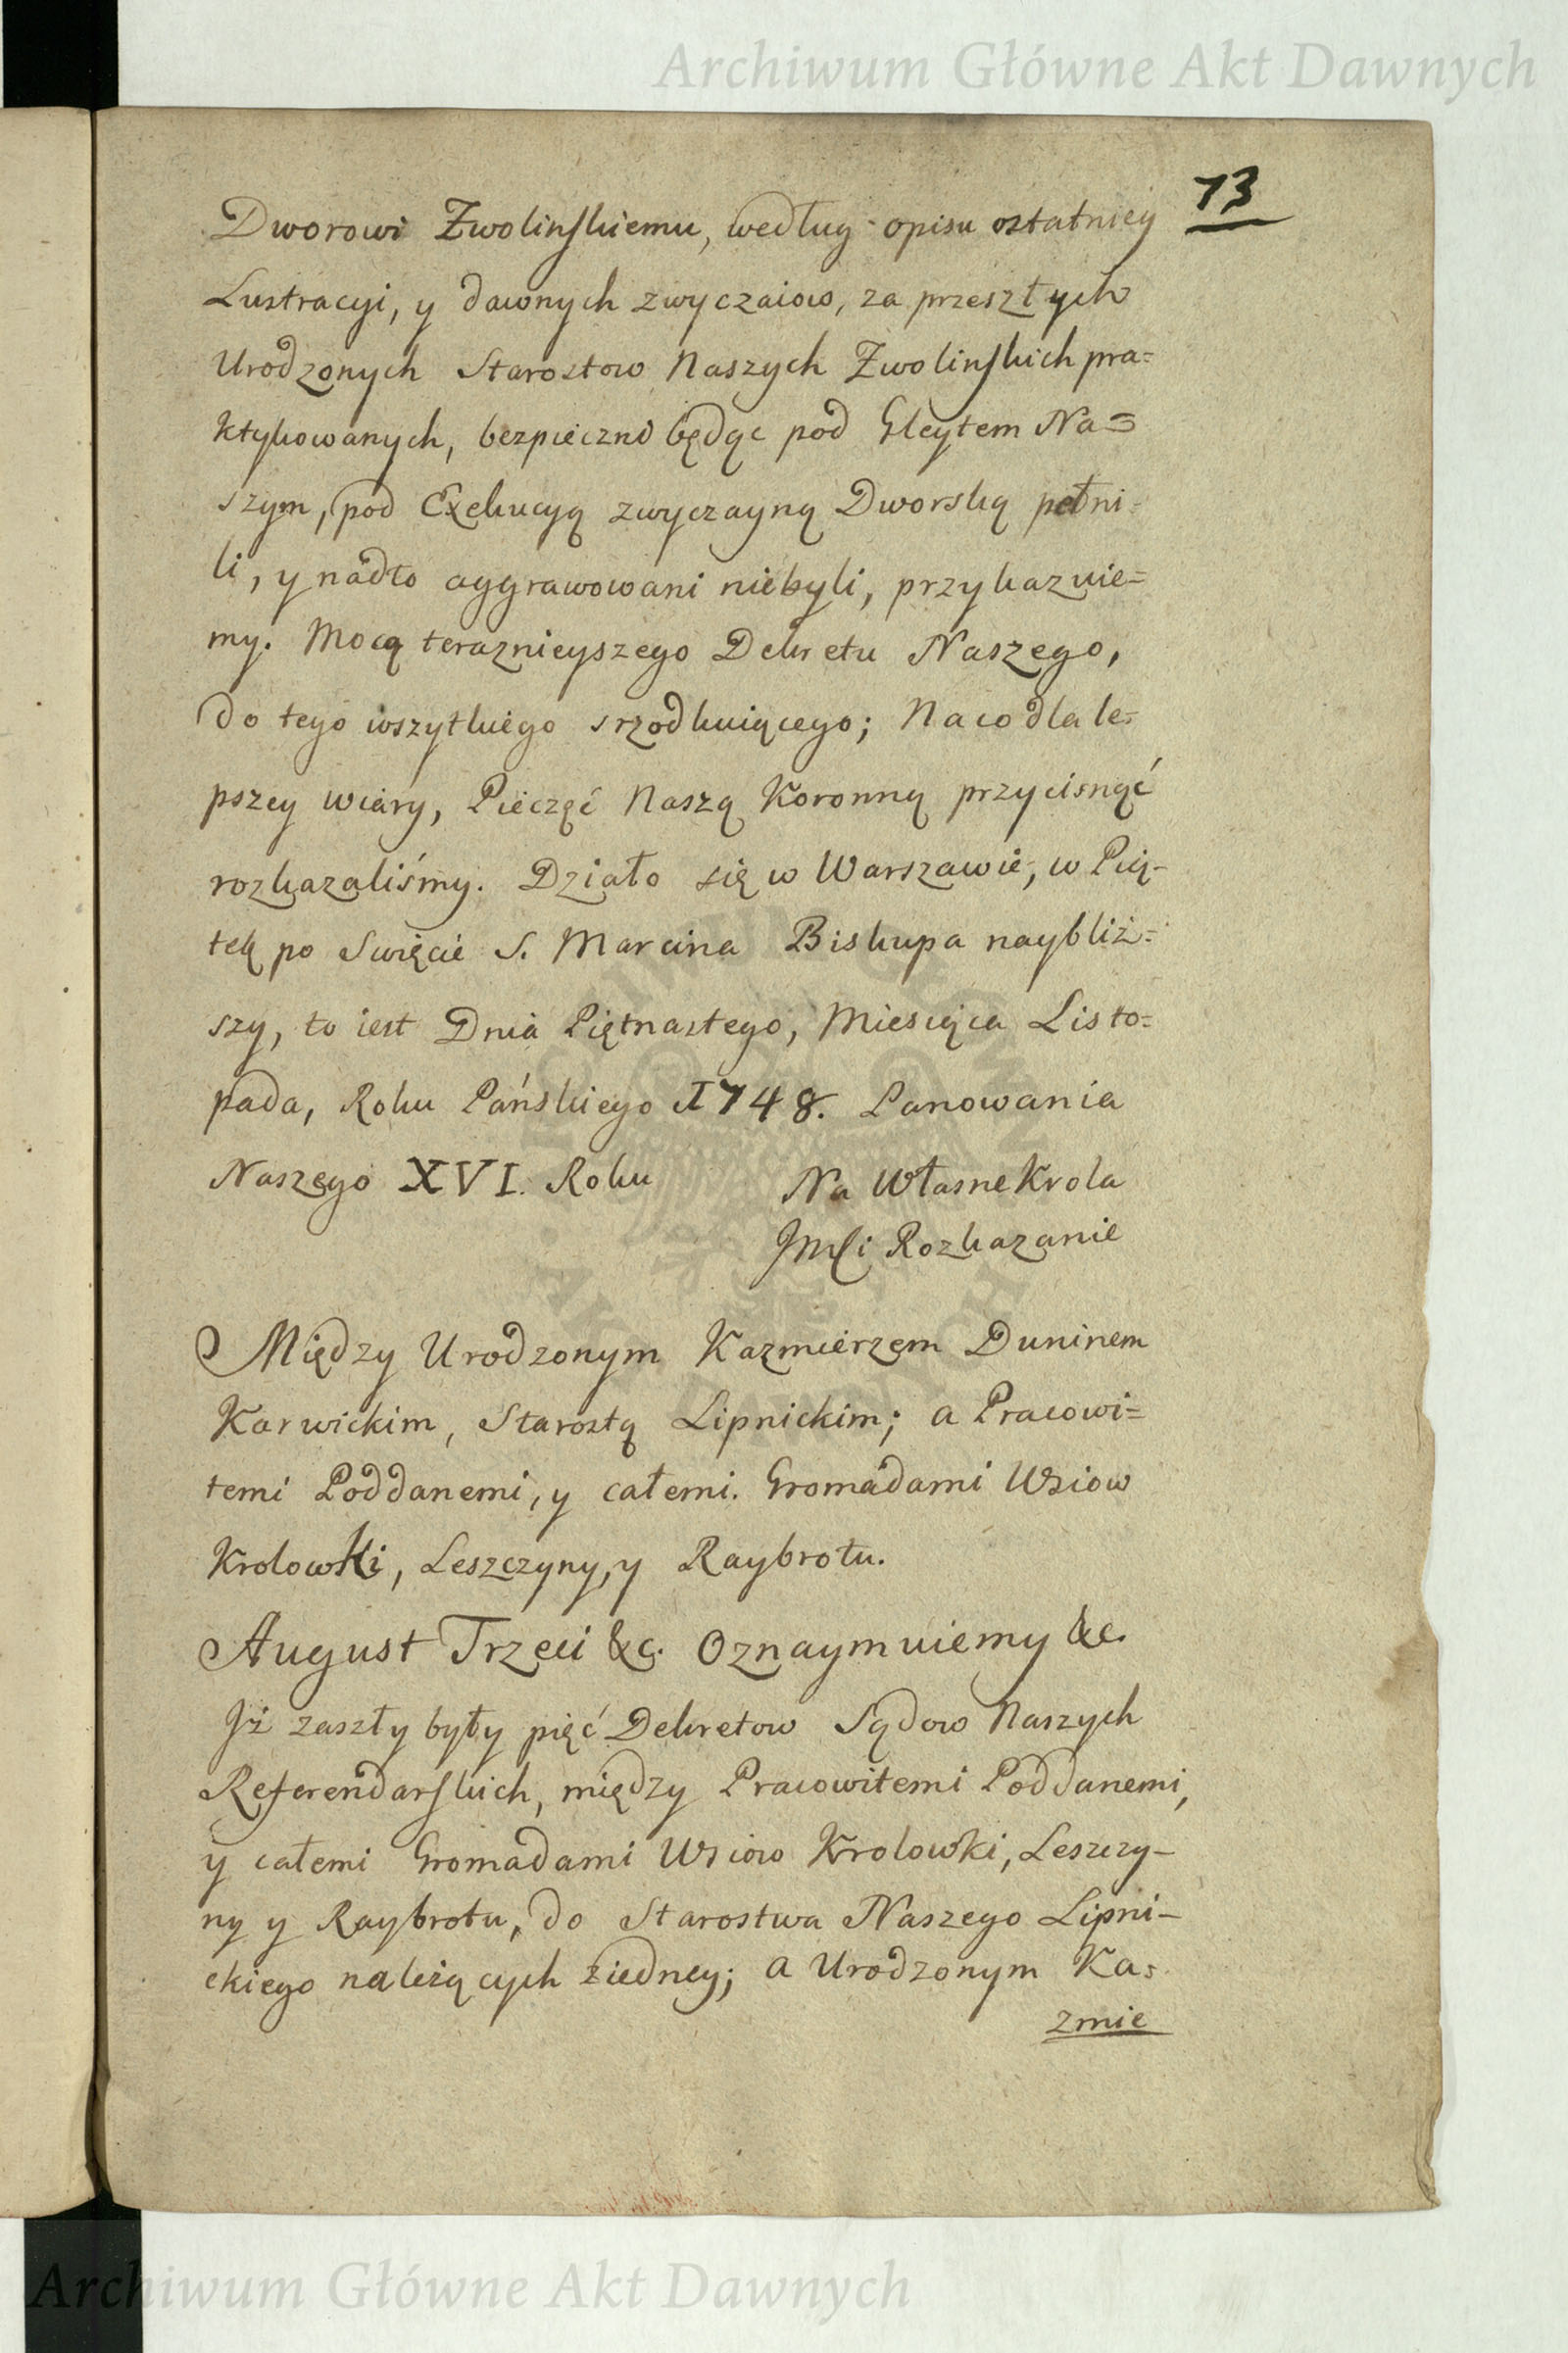 Archiwum Główne Akt Dawnych
73
Dworowi Zwolinskiemu, według opisu ostatniey
Lustracyi, y dawnych zwyczaiow, za przeszłych
Urodzonych Starostow Naszych Zwolinskich pra=
ktykowanych, bezpieczni będąc pod Gleytem Na=
szym, pod Exekucyą zwyczayną Dworską pełni=
li, y nadto aggrawowani niebyli, przykazuie=
my. Mocą teraznieyszego Dekretu Naszego,
do tego wszytkiego srzodkuiącego; Na co dla le=
pszey wiary, Pieczęć Naszą Koronną przycisnąć
rozkazaliśmy. Działo się w Warszawie, w Pią-
tek po Swięcie S. Marcina Biskupa naybliż=
szy, to iest Dnia Piętnastego, Miesiąca Listo=
pada, Roku Pańskiego 1748. Panowania
Naszego XVI. Roku
Na Własne Krola
Jmsci Rozkazanie
Między Urodzonym Kazmierzem Duninem
Karwickim, Starostą Lipnickim; a Pracowi=
temi Poddanemi, y całemi. Gromadami Wsiow
Krolowki, Leszczyny, y Raybrotu.
August Trzeci &c. Oznaymuiemy &c.
Jż zaszły były pięć Dekretow Sądow Naszych
Referendarskich, między Pracowitemi Poddanemi,
y całemi Gromadami Wsiow Krolowki, Leszczy-
ny y Raybrotu, do Starostwa Naszego Lipni-
ckiego należących ziedney; a Urodzonym Ka=
zmie
Archiwum Główne Akt Dawnych